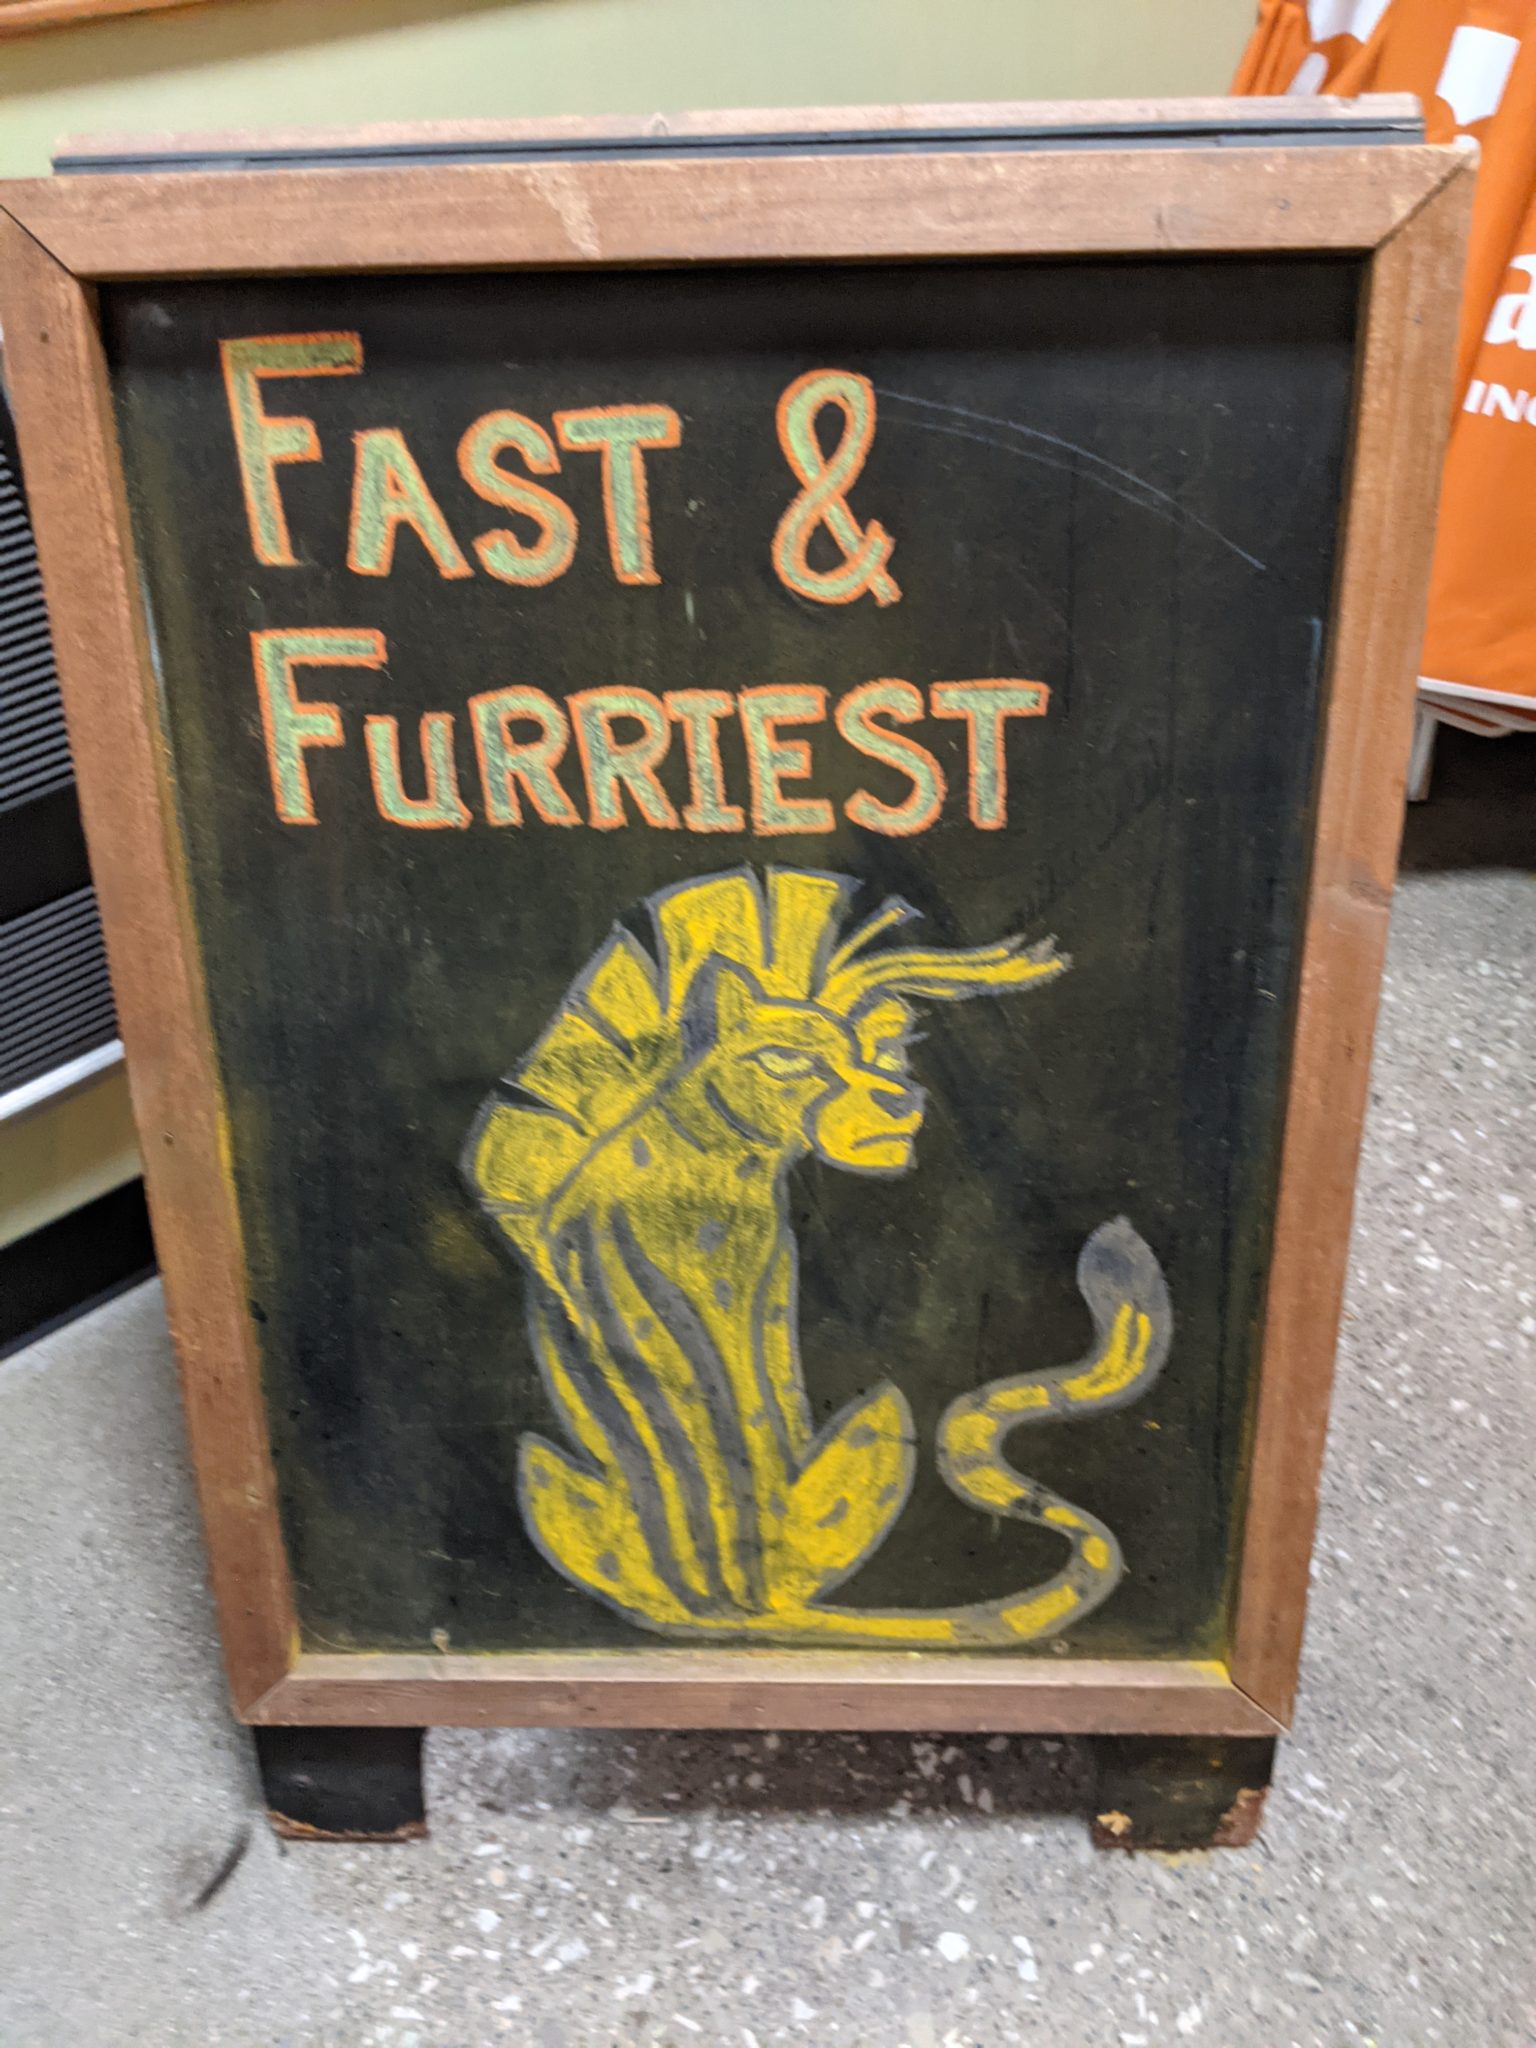 FAST &
FURRIEST